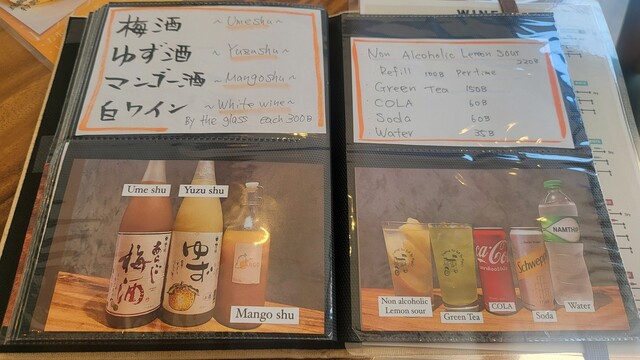 梅酒 ~ Umeshu ~
ゆず酒 ~ Yuzushu ~
マンゴー酒 ~Mangoshu~
白ワイン ~White wine~
By the glass each 300฿
Ume shu
Yuzu shu
梅酒
ゆず
Mango shu
WINE
Non Alcoholic Lemon Sour
220฿
Refill 198฿ Per time
Green Tea 150฿
COLA 60฿
Soda 60฿
Water 35฿
NAMTHIP
Coca-Cola
Schweppes
Non alcoholic
Lemon sour
Green Tea
COLA
Soda
Water